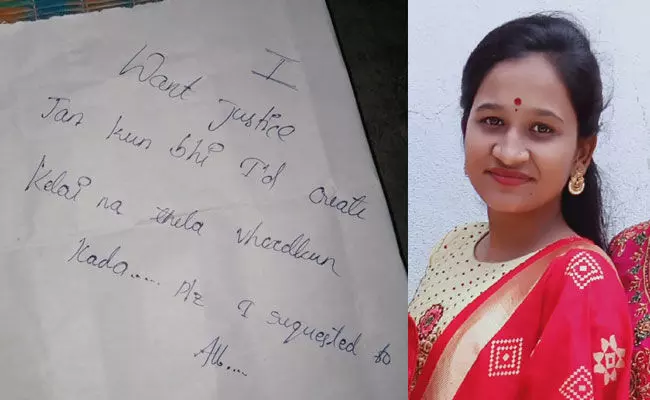 I
Want justice
Jar kun bhi I'd create
Kelai na thela vhordkun
Kada..... plz I suquested to
All....